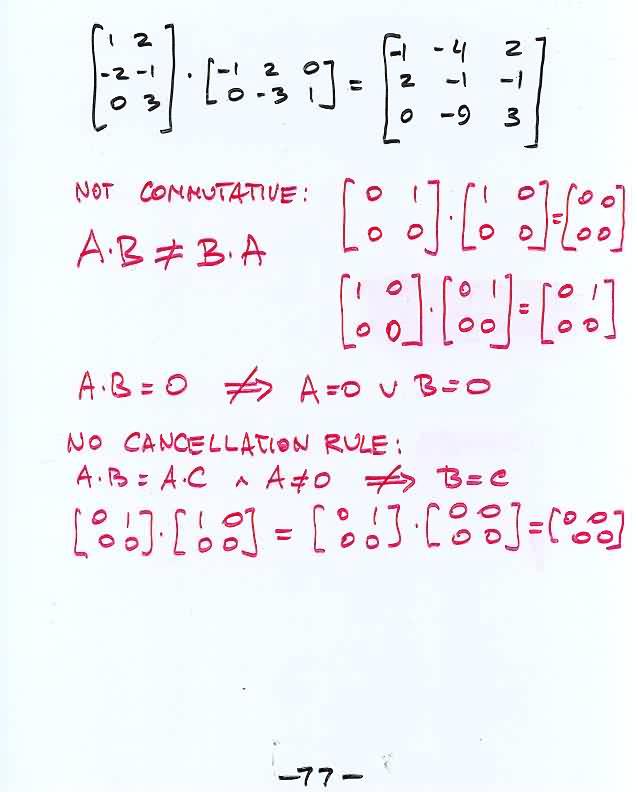 [1 2; -2 -1; 0 3] · [-1 2 0; 0 -3 1] = [-1 -4 2; 2 -1 -1; 0 -9 3]
NOT COMMUTATIVE: [0 1; 0 0] · [1 0; 0 0] = [0 0; 0 0]
A·B ≠ B·A
[1 0; 0 0] · [0 1; 0 0] = [0 1; 0 0]
A·B = 0 ⇏ A=0 ∨ B=0
NO CANCELLATION RULE:
A·B = A·C ∧ A≠0 ⇏ B=C
[0 1; 0 0] · [1 0; 0 0] = [0 1; 0 0] · [0 0; 0 0] = [0 0; 0 0]
-77-